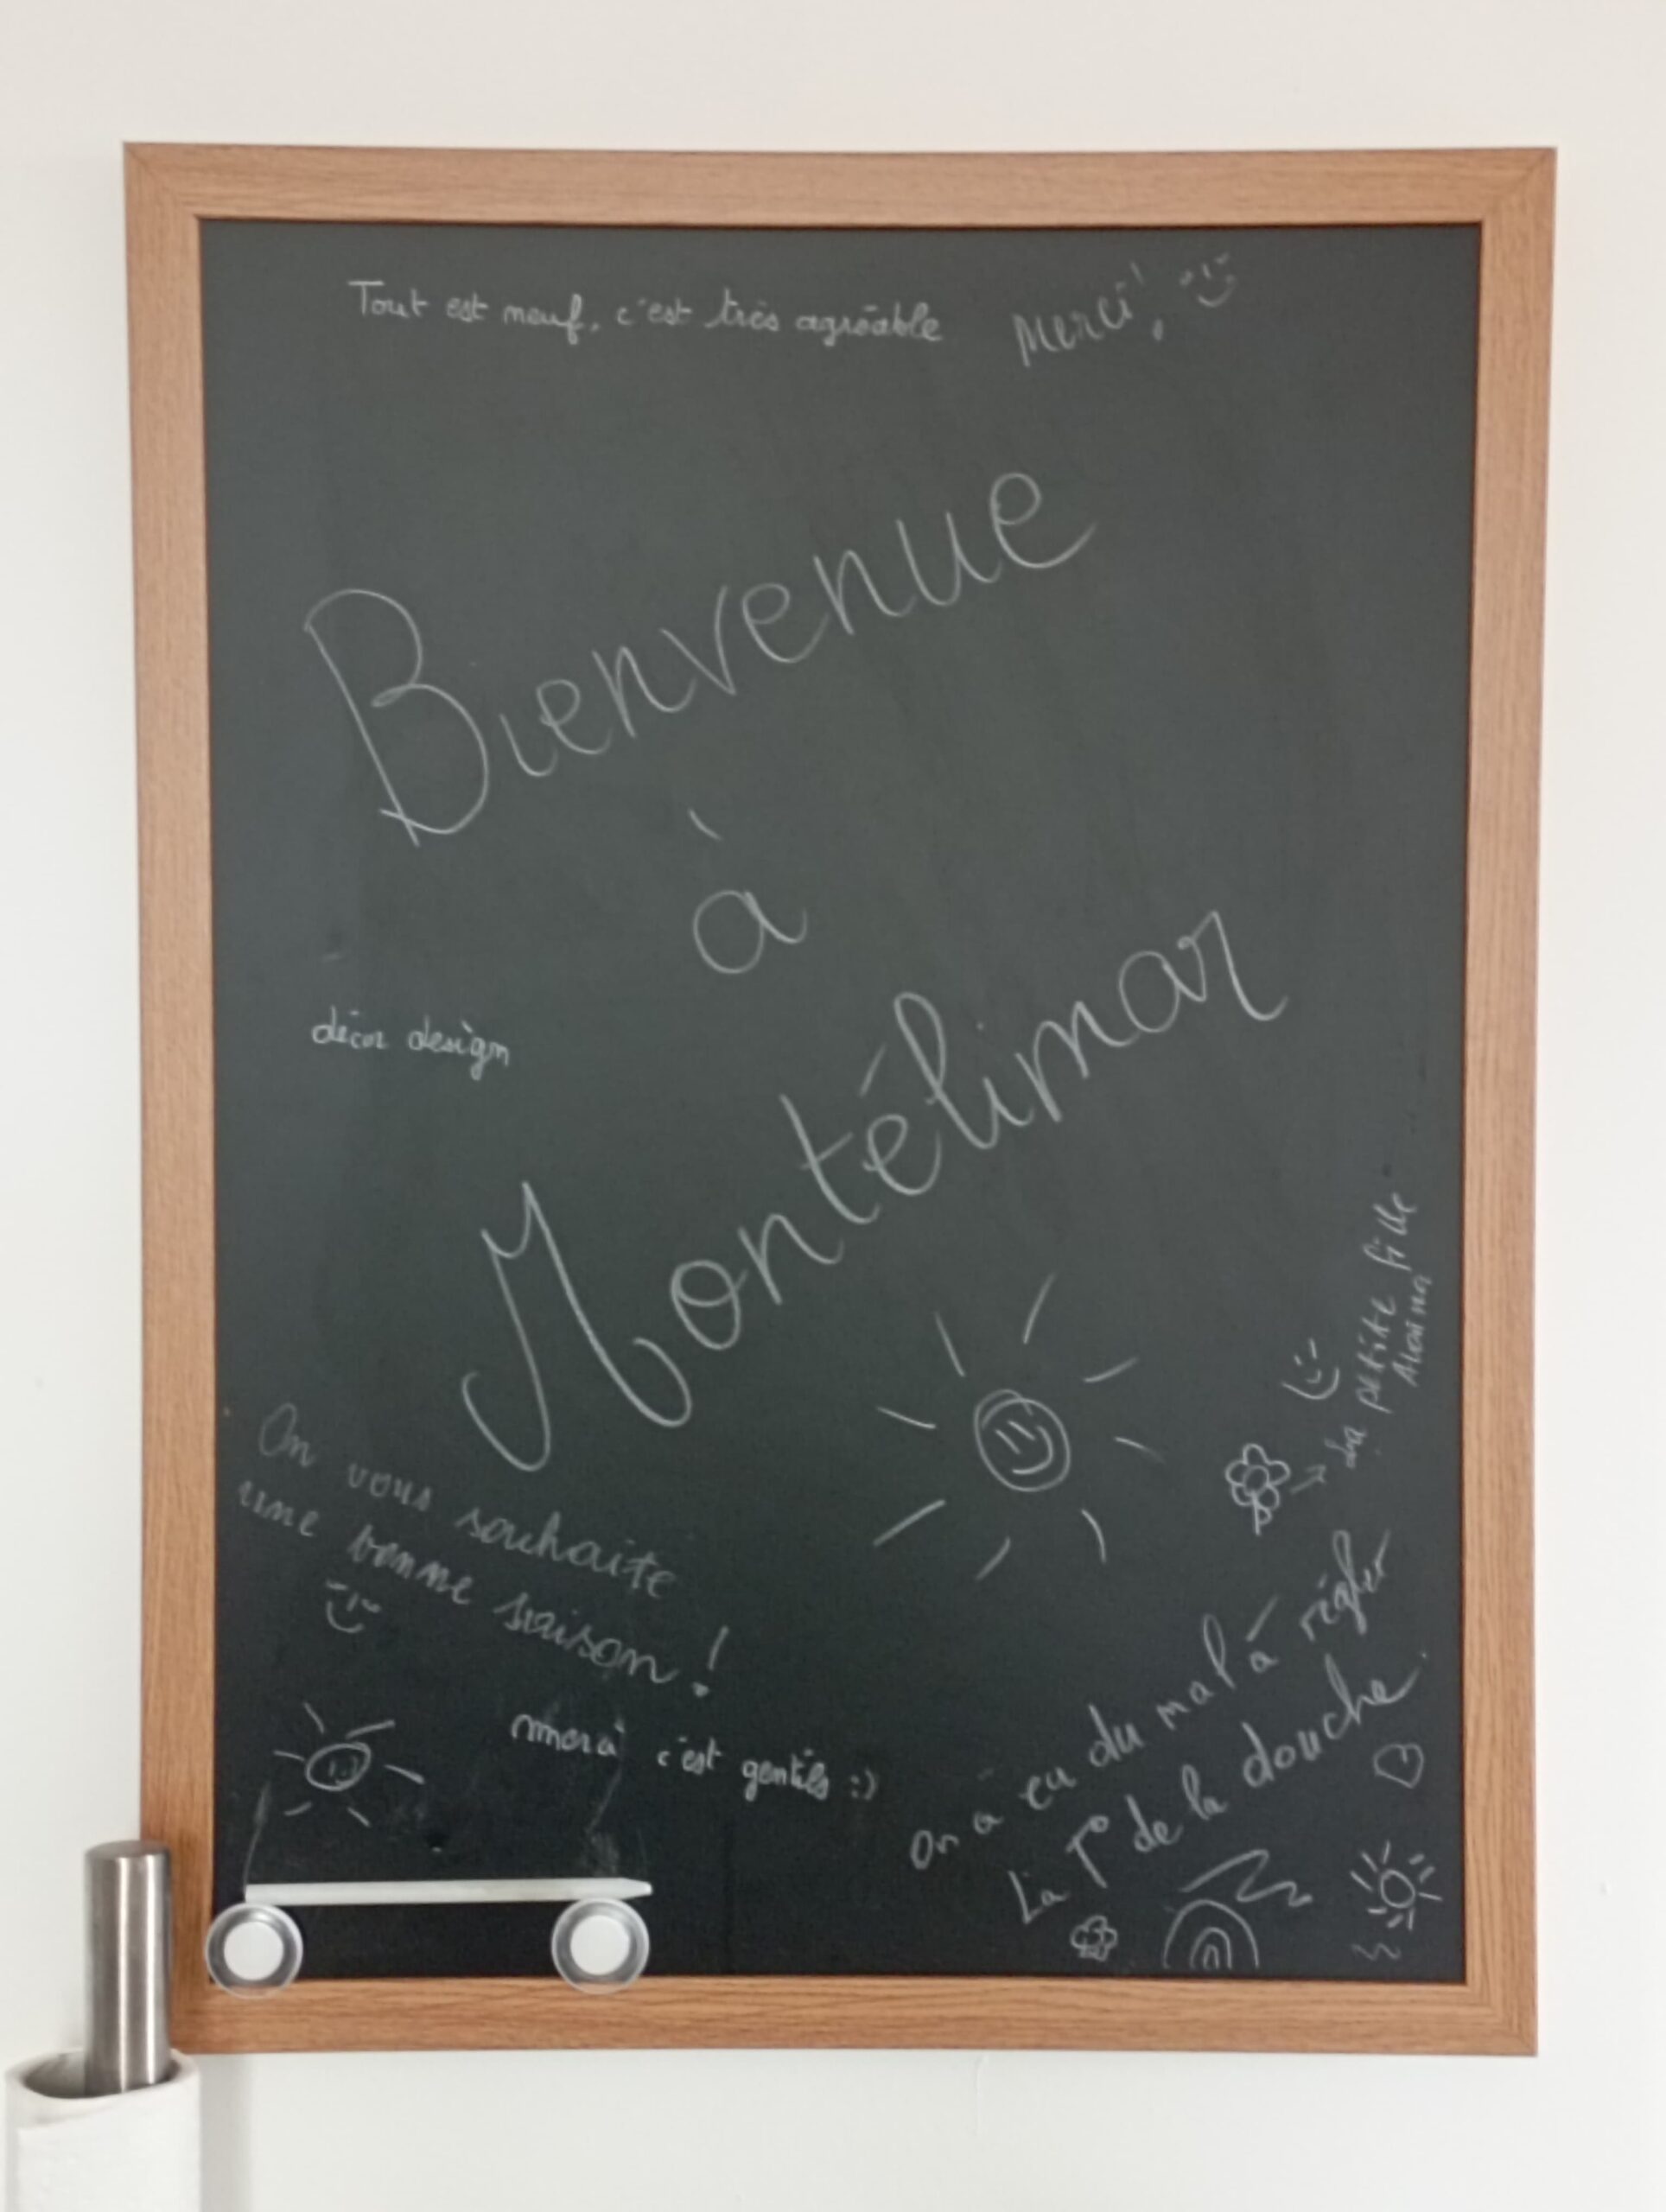 Tout est neuf, c'est très agréable
Merci !
Bienvenue
à
Montélimar
décor design
On vous souhaite
une bonne saison !
merci c'est gentils :)
La petite fille
On a eu du mal à régler
La T° de la douche